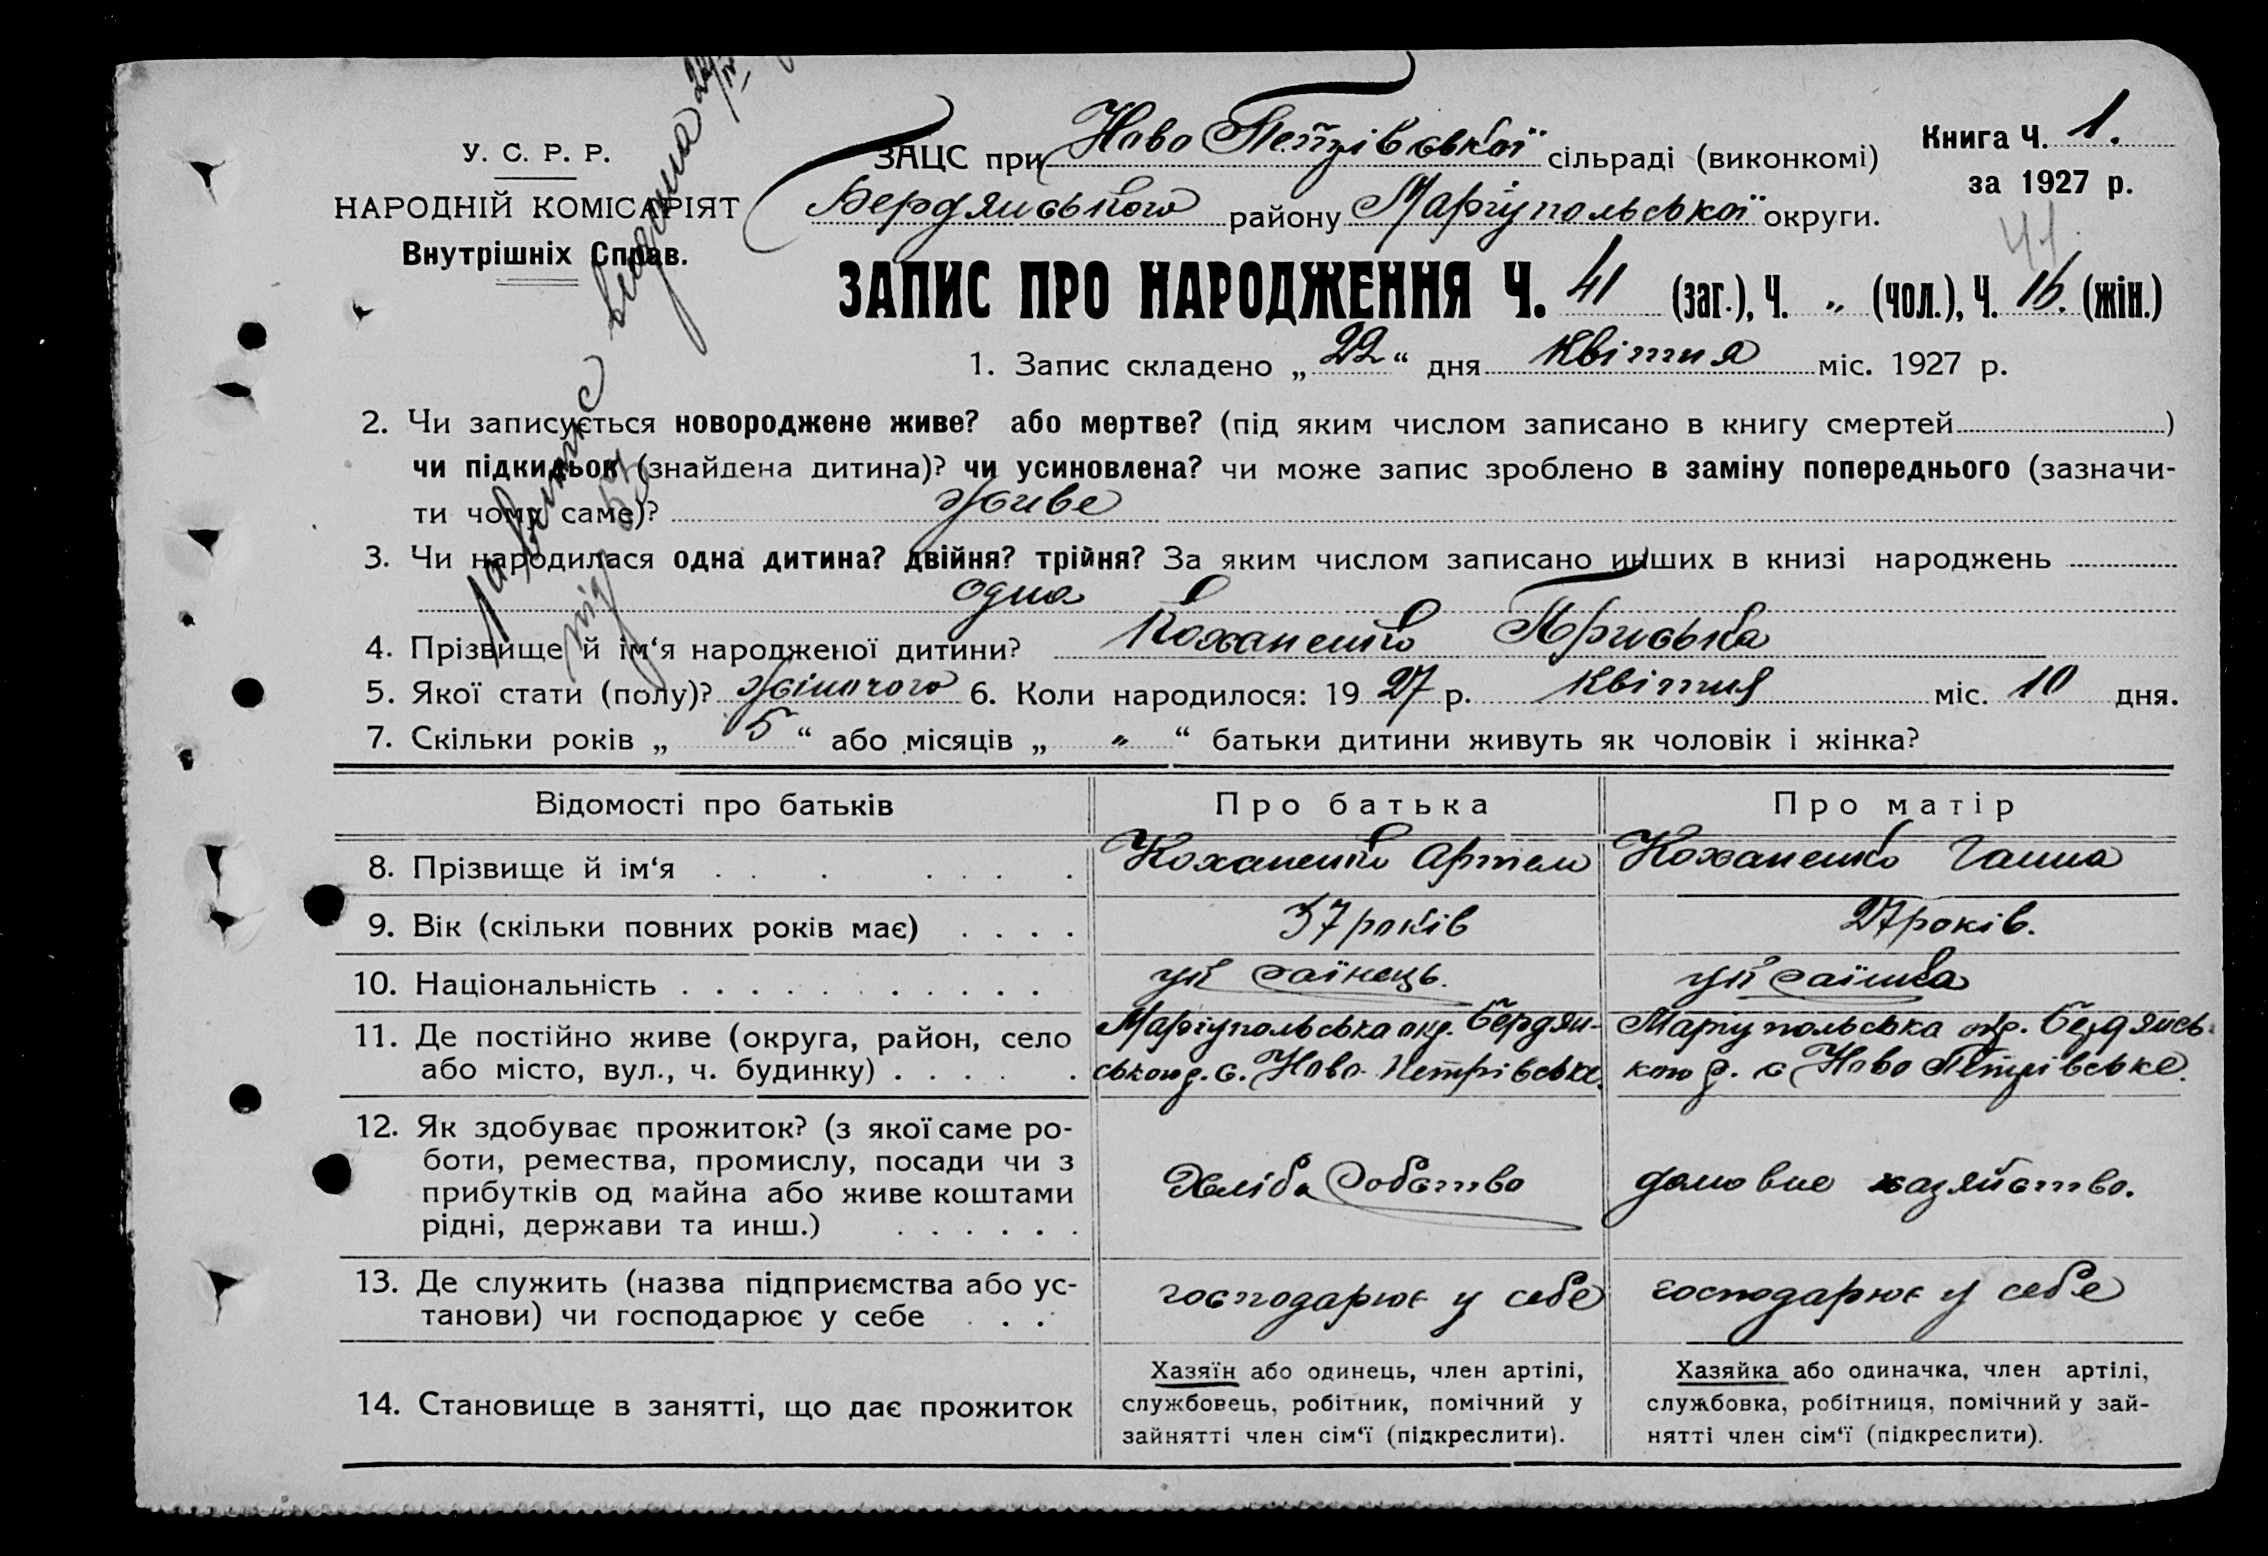 У. С. Р. Р.
НАРОДНІЙ КОМІСАРІЯТ
Внутрішніх Справ.
ЗАЦС при Ново Петрівської сільраді (виконкомі)
Бердянського району Маріупольської округи.
Книга Ч. 1.
за 1927 р.
41.
ЗАПИС ПРО НАРОДЖЕННЯ Ч. 41 (заг.), Ч. „ (чол.), Ч. 16. (жін.)
1. Запис складено „ 22 “ дня Квітня міс. 1927 р.
2. Чи записується новороджене живе? або мертве? (під яким числом записано в книгу смертей )
чи підкидьок (знайдена дитина)? чи усиновлена? чи може запис зроблено в заміну попереднього (зазначи-
ти чому саме)? Живе
3. Чи народилася одна дитина? двійня? трійня? За яким числом записано инших в книзі народжень
одна
4. Прізвище й ім‘я народженої дитини? Коханенко Приська
5. Якої стати (полу)? Жіночого 6. Коли народилося: 19 27 р. Квітня міс. 10 дня.
7. Скільки років „ 5 “ або місяців „ „ “ батьки дитини живуть як чоловік і жінка?
Відомості про батьків Про батька Про матір
8. Прізвище й ім‘я Коханенко Артем Коханенко Ганна
9. Вік (скільки повних років має) 37 років 27 років.
10. Національність українець. українка
11. Де постійно живе (округа, район, село Маріупольська окр. Бердян- Маріупольська окр. Бердянсь-
або місто, вул., ч. будинку) ського р. с. Ново-Петрівське. кого р. с Ново Петрівське.
12. Як здобуває прожиток? (з якої саме ро-
боти, ремества, промислу, посади чи з
прибутків од майна або живе коштами Хліборобство домовне хазяйство.
рідні, держави та инш.)
13. Де служить (назва підприємства або ус- господарює у себе господарює у себе
танови) чи господарює у себе
Хазяїн або одинець, член артілі, Хазяйка або одиначка, член артілі,
14. Становище в занятті, що дає прожиток службовець, робітник, помічний у службовка, робітниця, помічний у зай-
зайнятті член сім‘ї (підкреслити). нятті член сім‘ї (підкреслити).